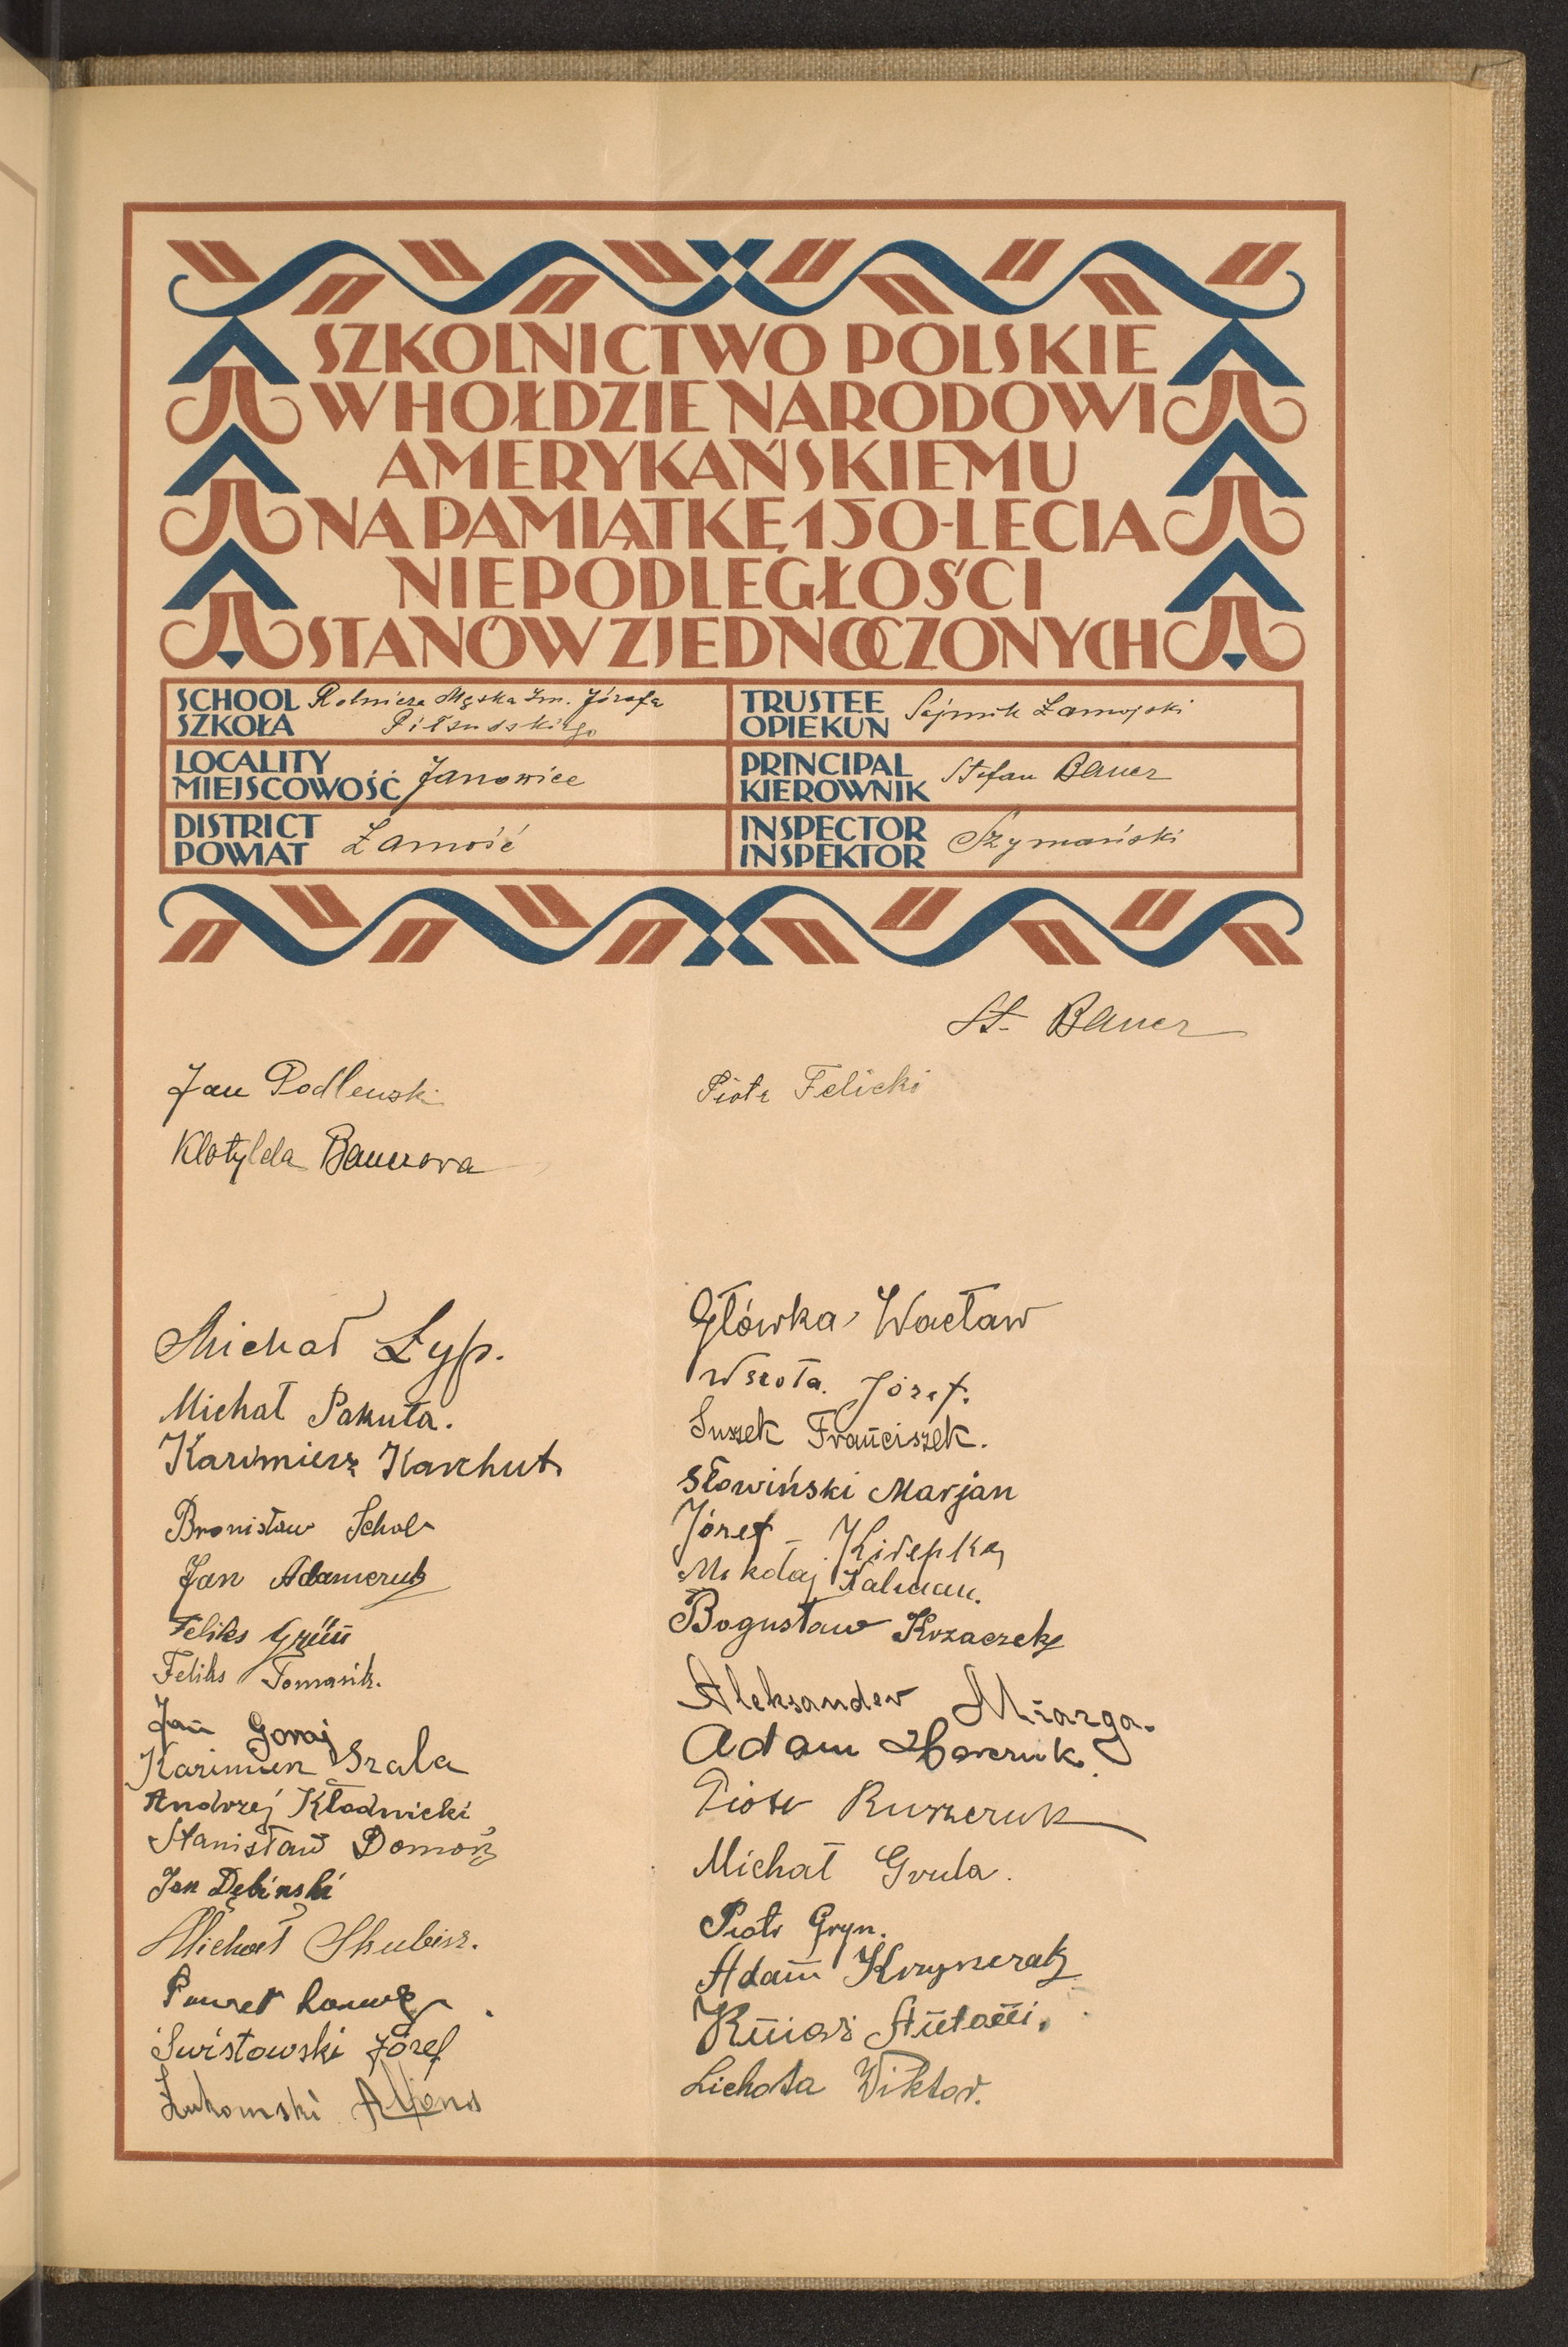 SZKOLNICTWO POLSKIE
W HOŁDZIE NARODOWI
AMERYKAŃSKIEMU
NA PAMIĄTKĘ 150-LECIA
NIEPODLEGŁOŚCI
STANÓW ZJEDNOCZONYCH
SCHOOL Rolnicza Męska Im. Józefa
SZKOŁA Piłsudskiego
TRUSTEE
OPIEKUN Sejmik Zamojski
LOCALITY
MIEJSCOWOŚĆ Janowice
PRINCIPAL
KIEROWNIK Stefan Bauer
DISTRICT
POWIAT Zamość
INSPECTOR
INSPEKTOR Szymański
St. Bauer
Jan Podlewski
Piotr Felicki
Klotylda Bauerowa
Michał Łyp.
Michał Pakuła.
Kazimierz Karchut
Bronisław Schab
Jan Adamczuk
Feliks Grün
Feliks Tomasik.
Jan Goraj
Kazimierz Szala
Andrzej Kłodnicki
Stanisław Domość
Jan Dębiński
Michał Skubisz.
Paweł
Świstowski Józef
Żukomski Alfons
Główka Wacław
Wszoła. Józef.
Suszek Franciszek.
Słowiński Marjan
Józef
Mikołaj Kalman.
Bogusław Krzaczek
Aleksander Miazga.
Adam
Piotr Ruszczuk
Michał Gruda.
Piotr Gryn.
Adam Krzyszczak
Kniaź Antoni.
Lichota Wiktor.